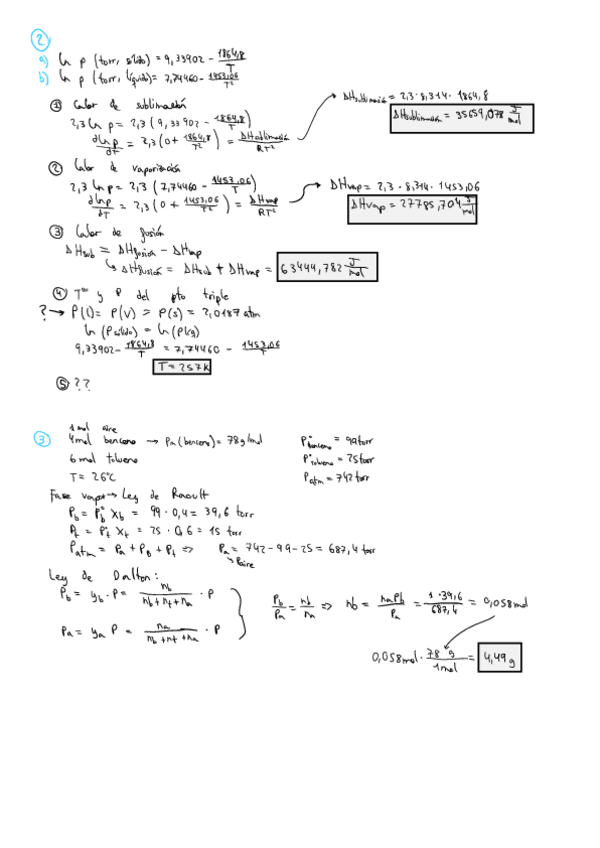 2
a) ln p (torr, sólido) = 9,33902 - 1864,8/T
b) ln p (torr, líquido) = 7,74460 - 1453,06/T²
① Calor de sublimación
2,3 ln p = 2,3 (9,33902 - 1864,8/T)
dlnp/dT = 2,3 (0 + 1864,8/T²) = ΔHsublimación/RT²
ΔHsublimación = 2,3 · 8,314 · 1864,8
ΔHsublimación = 35659,078 J/mol
② Calor de vaporización
2,3 ln p = 2,3 (7,74460 - 1453,06/T)
dlnp/dT = 2,3 (0 + 1453,06/T²) = ΔHvap/RT²
ΔHvap = 2,3 · 8,314 · 1453,06
ΔHvap = 27785,704 J/mol
③ Calor de fusión
ΔHsub = ΔHfusión - ΔHvap
↳ ΔHfusión = ΔHsub + ΔHvap = 63444,782 J/mol
④ Tª y P del pto triple
? → P(l) = P(v) = P(s) = 2,0187 atm
ln (Psólido) = ln (Pliq)
9,33902 - 1864,8/T = 7,74460 - 1453,06/T
T = 257K
⑤ ??
3
1 mol aire
4 mol benceno → Pm (benceno) = 78 g/mol
6 mol tolueno
T = 26°C
P°benceno = 99 torr
P°tolueno = 25 torr
Patm = 742 torr
Fase vapor → Ley de Raoult
Pb = P°b Xb = 99 · 0,4 = 39,6 torr
Pt = P°t Xt = 25 · 0,6 = 15 torr
Patm = Pa + PB + Pt => Pa = 742 - 99 - 25 = 687,4 torr
↳ Paire
Ley de Dalton:
Pb = yb · P = nb/(nb + nt + na) · P
Pa = ya P = na/(nb + nt + na) · P
Pb/Pa = nb/na => nb = naPb/Pa = 1 · 39,6/687,4 = 0,058 mol
0,058 mol · 78 g/1 mol = 4,49 g